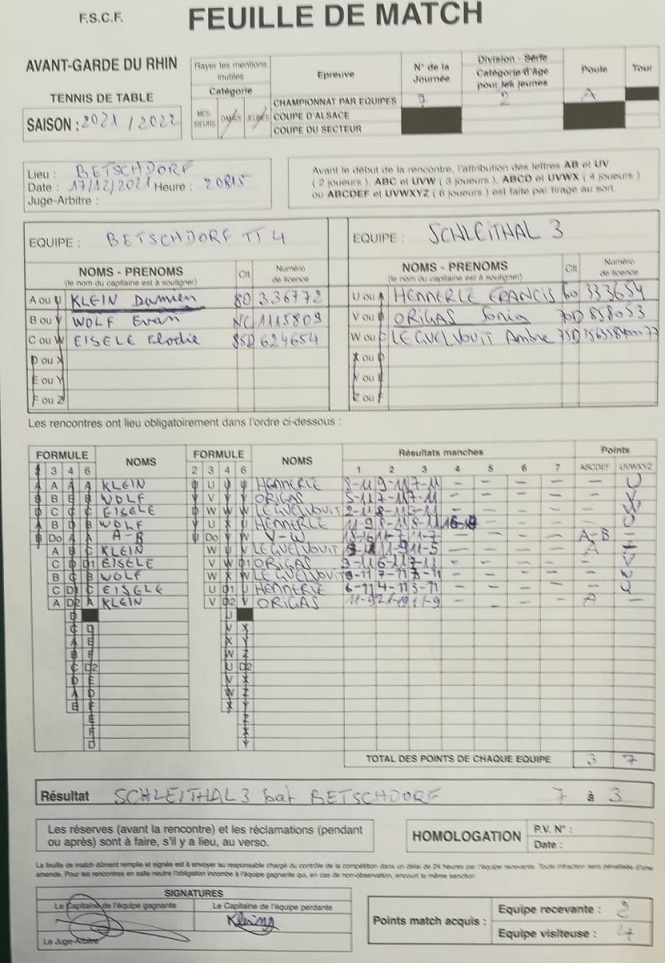 F.S.C.F.
FEUILLE DE MATCH
AVANT-GARDE DU RHIN
TENNIS DE TABLE
SAISON : 2021 / 2022
Rayer les mentions inutiles
Catégorie
MESSIEURS DAMES JEUNES
Epreuve
N° de la Journée
Division - Série
Catégorie d'âge pour les jeunes
Poule
Tour
CHAMPIONNAT PAR EQUIPES 7 2 A
COUPE D'ALSACE
COUPE DU SECTEUR
Lieu : BETSCHDORF
Date : 17/12/2021 Heure : 20H15
Juge-Arbitre :
Avant le début de la rencontre, l'attribution des lettres AB et UV
( 2 joueurs ), ABC et UVW ( 3 joueurs ), ABCD et UVWX ( 4 joueurs )
ou ABCDEF et UVWXYZ ( 6 joueurs ) est faite par tirage au sort.
EQUIPE : BETSCHDORF TT 4
EQUIPE : SCHLEITHAL 3
NOMS - PRENOMS Clt Numéro de licence
(le nom du capitaine est à souligner)
NOMS - PRENOMS Clt Numéro de licence
(le nom du capitaine est à souligner)
A ou U KLEIN Damien 80 336772
B ou V WOLF Evan NC 1115809
C ou W EISELE Elodie 85D 624654
D ou X
E ou Y
F ou Z
U ou A HENNERLE FRANCIS 60 333654
V ou B ORIGAS Sonia 70D 858053
W ou C LE GUELVOUIT Ambre
X ou D
V ou E
Z ou F
Les rencontres ont lieu obligatoirement dans l'ordre ci-dessous :
FORMULE NOMS FORMULE NOMS Résultats manches Points
2 3 4 6 2 3 4 6 1 2 3 4 5 6 7 ABCDEF UVWXYZ
A A A A KLEIN U U U HENNERLE - - - - U
B B B B WOLF V V V V ORIGAS 5-11 7-11 7-11 - - - - V
C C C EISELE W W W LE GUELVOUIT 2-11 8-11 3-11 - - - -
B D B WOLF U X U HENNERLE 11-9 8-11 8-11 - - - U
Do A A A-B Do V V-W 11-7 11-7 - - - - A-B
A B C KLEIN W U V LE GUELVOUIT 11-9 11-5 - - - - A
C D D1 EISELE V W D1 ORIGAS 3-11 6-11 7-11 - - - - V
B C B WOLF W X W LE GUELVOUIT 7-11 - - - -
C D1 C EISELE U D1 U HENNERLE 6-11 4-11 3-11 - - - - U
A D2 A KLEIN V D2 V ORIGAS 11-9 - - - - A -
TOTAL DES POINTS DE CHAQUE EQUIPE 3 7
Résultat SCHLEITHAL 3 bat BETSCHDORF 7 à 3
Les réserves (avant la rencontre) et les réclamations (pendant
ou après) sont à faire, s'il y a lieu, au verso.
HOMOLOGATION
P.V. N° :
Date :
La feuille de match dûment remplie et signée est à envoyer au responsable chargé du contrôle de la compétition dans un délai de 24 heures par l'équipe recevante. Toute infraction sera pénalisée d'une
amende. Pour les rencontres en salle neutre l'obligation incombe à l'équipe gagnante qui, en cas de non-observation, encourt la même sanction.
SIGNATURES
Le Capitaine de l'équipe gagnante Le Capitaine de l'équipe perdante
Le Juge-Arbitre
Points match acquis :
Equipe recevante : 2
Equipe visiteuse : 4